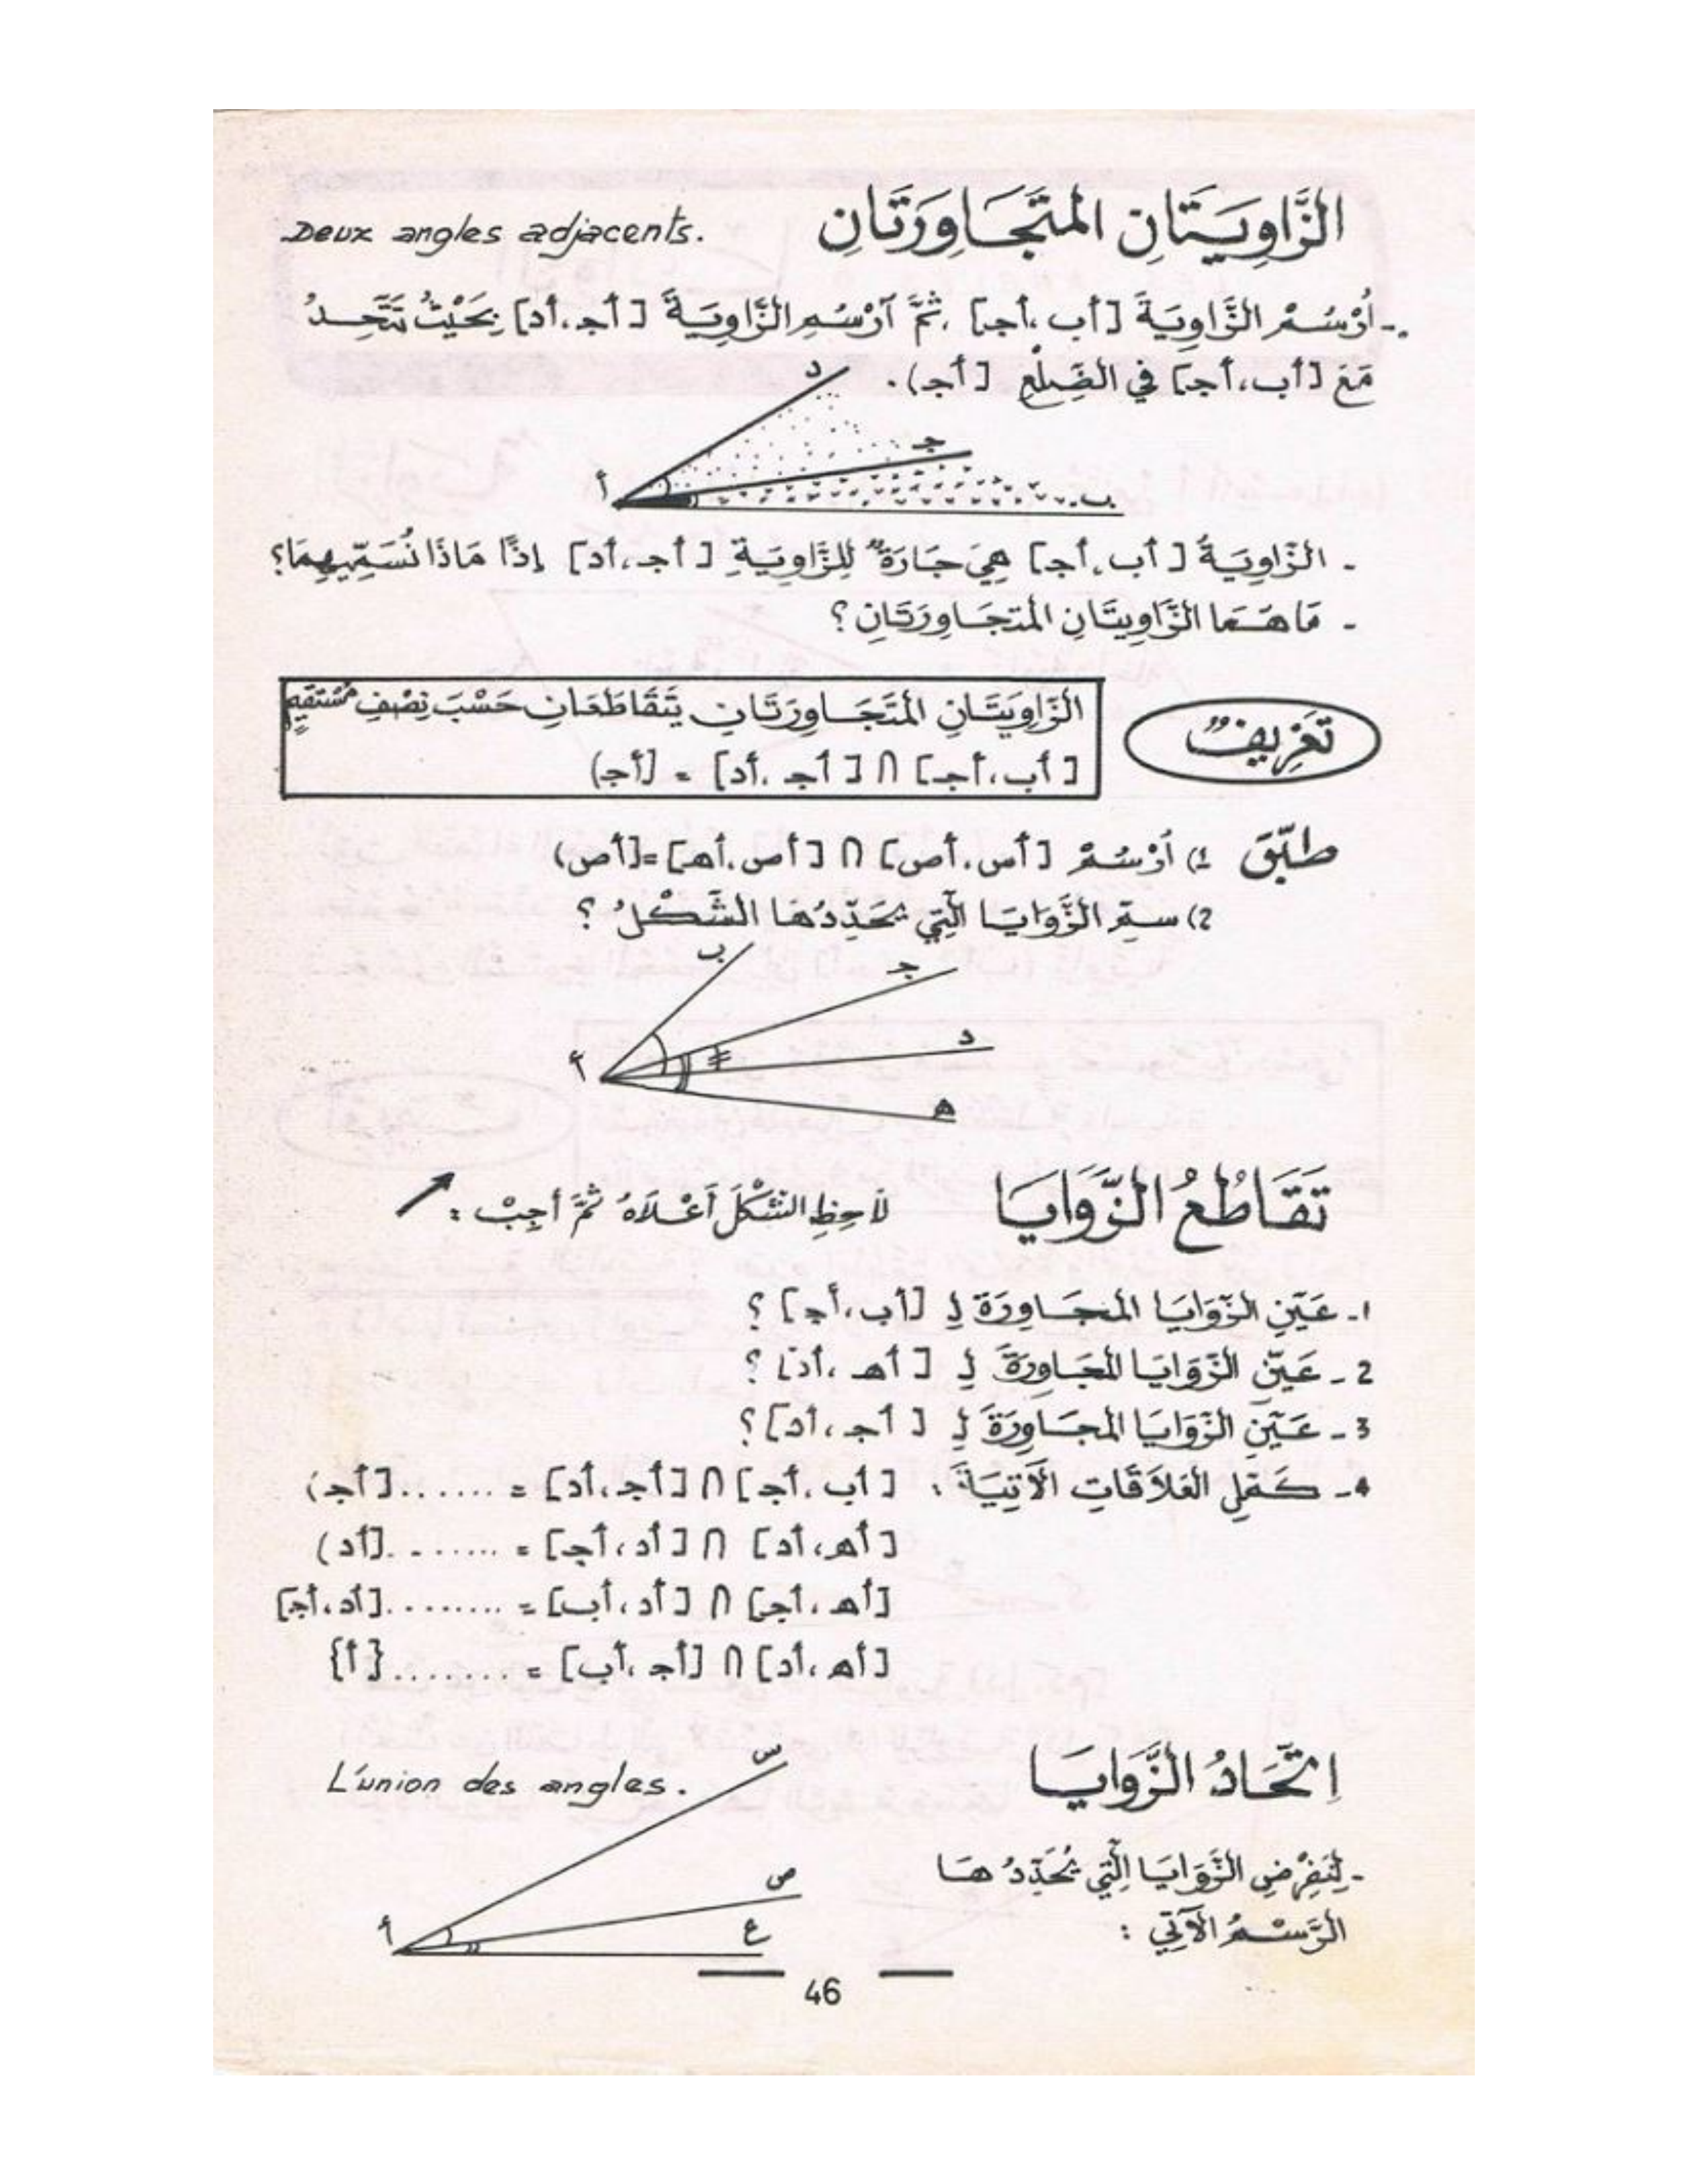 الزَّاوِيَتَانِ المتَجَاوِرَتَانِ
Deux angles adjacents.
- أُرْسُمْ الزَّاوِيَةَ [أب،أجـ]، ثُمَّ آرْسُمِ الزَّاوِيَةَ [أجـ،أد] بِحَيْثُ تَتَّحِدُ
مَعَ [أب،أجـ] في الضِلْعِ [أجـ).
د
جـ
أ
ب
- الزَّاوِيَةُ [أب،أجـ] هِيَ جَارَةٌ لِلزَّاوِيَةِ [أجـ،أد] إِذًا مَاذَا نُسَمِّيهِمَا؟
- مَا هُمَا الزَّاوِيتَانِ المتَجَاوِرَتَانِ؟
تَعْرِيفٌ
الزَّاوِيَتَانِ المتَجَاوِرَتَانِ يَتَقَاطَعَانِ حَسْبَ نِصْفِ مُسْتَقِيمٍ
[أب،أجـ] ∩ [أجـ،أد] = [أجـ)
طبّق 1) أُرْسُمْ [أس،أص] ∩ [أص،أهـ] = [أص)
2) سمِّ الزَّوَايَا الَّتِي يُحَدِّدُهَا الشَّكْلُ؟
ب
جـ
د
أ
هـ
تَقَاطُعُ الزَّوَايَا
لَاحِظِ الشَّكْلَ أَعْلَاهُ ثُمَّ أجِبْ :
1- عَيِّنِ الزَّوَايَا المجَاوِرَةَ لِ [أب،أجـ]؟
2- عَيِّنِ الزَّوَايَا المجَاوِرَةَ لِ [أهـ،أد]؟
3- عَيِّنِ الزَّوَايَا المجَاوِرَةَ لِ [أجـ،أد]؟
4- كَمِّلِ العَلاَقَاتِ الآتِيَةَ : [أب،أجـ] ∩ [أجـ،أد] = ......[أجـ)
[أهـ،أد] ∩ [أد،أجـ] = ........[أد)
[أهـ،أجـ] ∩ [أد،أب] = ........[أد،أجـ]
[أهـ،أد] ∩ [أجـ،أب] = ........{أ}
اِتِّحَادُ الزَّوَايَا
L'union des angles.
- لِنَفْرِضِ الزَّوَايَا الَّتِي يُحَدِّدُهَا
الرَّسْمُ الآتِي :
س
ص
أ
ع
46